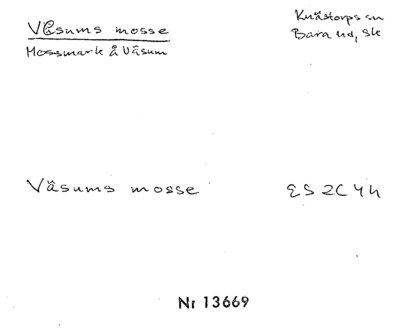 Våsums mosse
Mossmark å Våsum
Knästorps sn
Bara hd, Sk
Våsums mosse
ES 2C 4h
Nr 13669